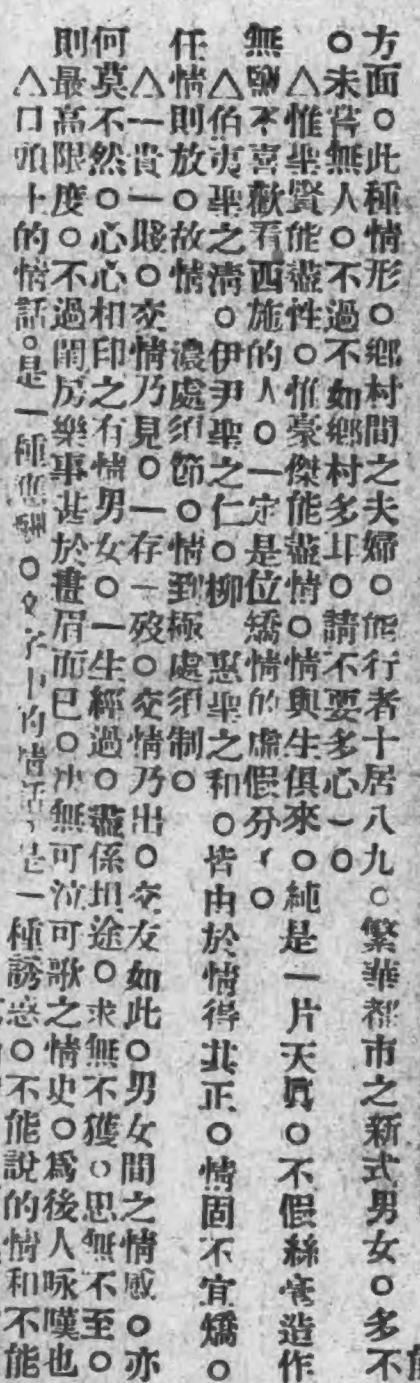 方面○此種情形○鄉村間之夫婦○能行者十居八九○繁華都市之新式男女○多不
○未嘗無人○不過不如鄉村多耳○請不要多心一○
△惟聖賢能盡性○惟豪傑能盡情○情與生俱來○純是一片天眞○不假絲毫造作
無鹽不喜歡看西施的人○一定是位矯情的虛假分○
△伯夷聖之淸○伊尹聖之仁○柳惠聖之和○皆由於情得其正○情固不宜矯○
任情則放○故情濃處須節○情到極處須制○
△一貴一賤○交情乃見○一存一歿○交情乃出○交友如此○男女間之情感○亦
何莫不然○心心相印之有情男女○一生經過○盡係坦途○求無不獲○思無不至○
則最高限度○不過閨房樂事甚於畫眉而已○决無可泣可歌之情史○爲後人咏嘆也
△口頭上的情話○是一種應酬○文字上的情話○是一種誘惑○不能說的情和不能